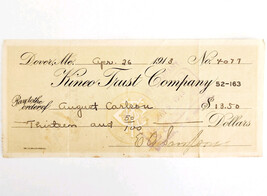 Dover, Me. Apr. 26 1913 No. 4077
Kineo Trust Company 52-163
Pay to the order of August Carlson $13.50
Thirteen and 50/100 Dollars